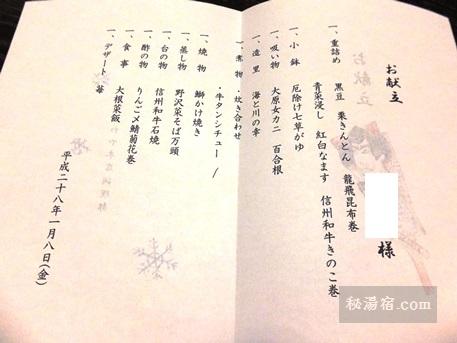 お献立
様
一、重詰め 黒豆 栗きんとん 龍飛昆布巻
青菜浸し 紅白なます 信州和牛きのこ巻
一、小鉢 厄除け七草がゆ
一、吸い物 大原女カニ 百合根
一、造里 海と川の幸
一、煮物 ・炊き合わせ
・牛タンシチュー /
一、焼物 鰤かけ焼き
一、蒸し物 野沢菜そば万頭
一、台の物 信州和牛石焼
一、酢の物 りんご〆鯖菊花巻
一、食事 大根菜飯
一、デザート
平成二十八年一月八日(金)
お献立
秘湯宿.com